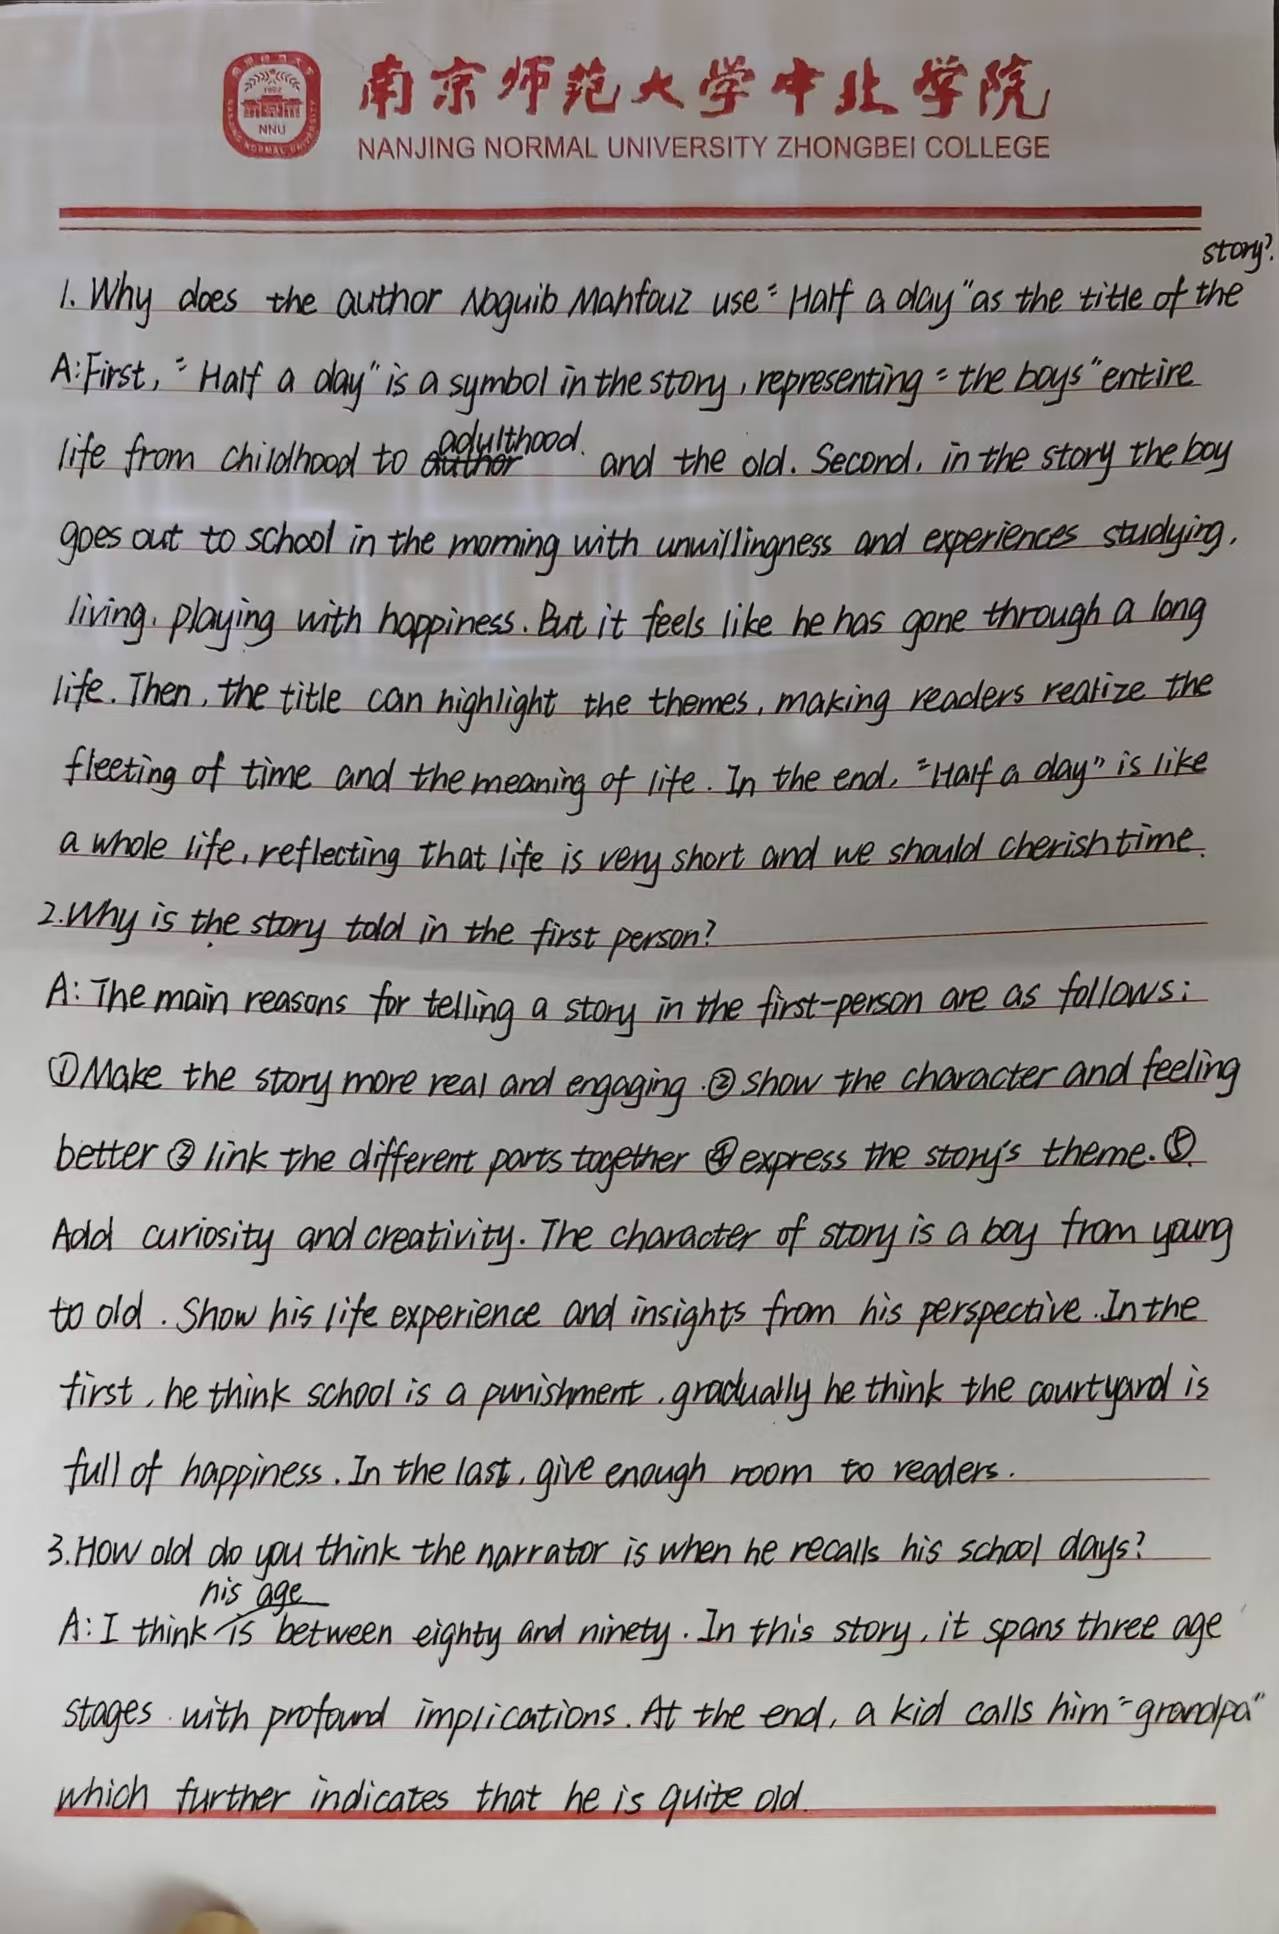 南京师范大学
1902
NNU
NANJING NORMAL UNIVERSITY
南京师范大学中北学院
NANJING NORMAL UNIVERSITY ZHONGBEI COLLEGE
story?
1. Why does the author Naguib Mahfouz use "Half a day" as the title of the
A: First, "Half a day" is a symbol in the story, representing "the boys" entire
life from childhood to adulthood. and the old. Second, in the story the boy
goes out to school in the morning with unwillingness and experiences studying,
living, playing with happiness. But it feels like he has gone through a long
life. Then, the title can highlight the themes, making readers realize the
fleeting of time and the meaning of life. In the end, "Half a day" is like
a whole life, reflecting that life is very short and we should cherish time.
2. Why is the story told in the first person?
A: The main reasons for telling a story in the first-person are as follows:
① Make the story more real and engaging. ② show the character and feeling
better ③ link the different parts together ④ express the story's theme. ⑤
Add curiosity and creativity. The character of story is a boy from young
to old. Show his life experience and insights from his perspective. In the
first, he think school is a punishment, gradually he think the courtyard is
full of happiness. In the last, give enough room to readers.
3. How old do you think the narrator is when he recalls his school days?
his age
A: I think is between eighty and ninety. In this story, it spans three age
stages with profound implications. At the end, a kid calls him "grandpa"
which further indicates that he is quite old.